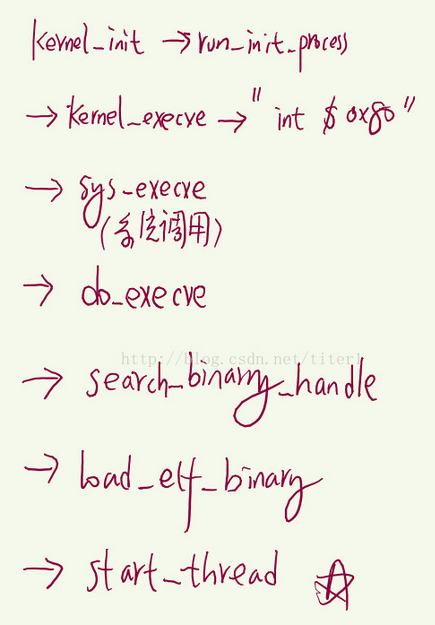 kernel_init → run_init_process
→ kernel_execve → "int $0x80"
→ sys_execve
(系统调用)
→ do_execve
http://blog.csdn.net/titer1
→ search_binary_handle
→ load_elf_binary
→ start_thread ☆